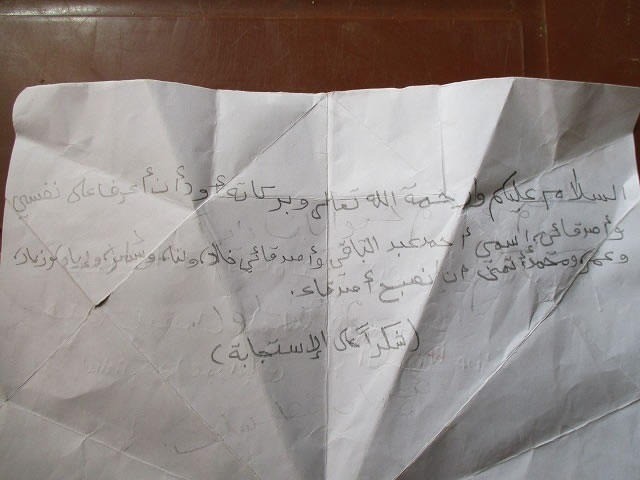 السلام عليكم وارحمة الله تعالى وبركاته أودأن أعرفا على نفسي
وأصدقائي، اسمي أحمد عبد الباقي وأصدقائي خالد، ولنا، و
وعمر، ومحمد أتمنى ان نصبح أصدقاء.
(شكراً على الإستجابة)